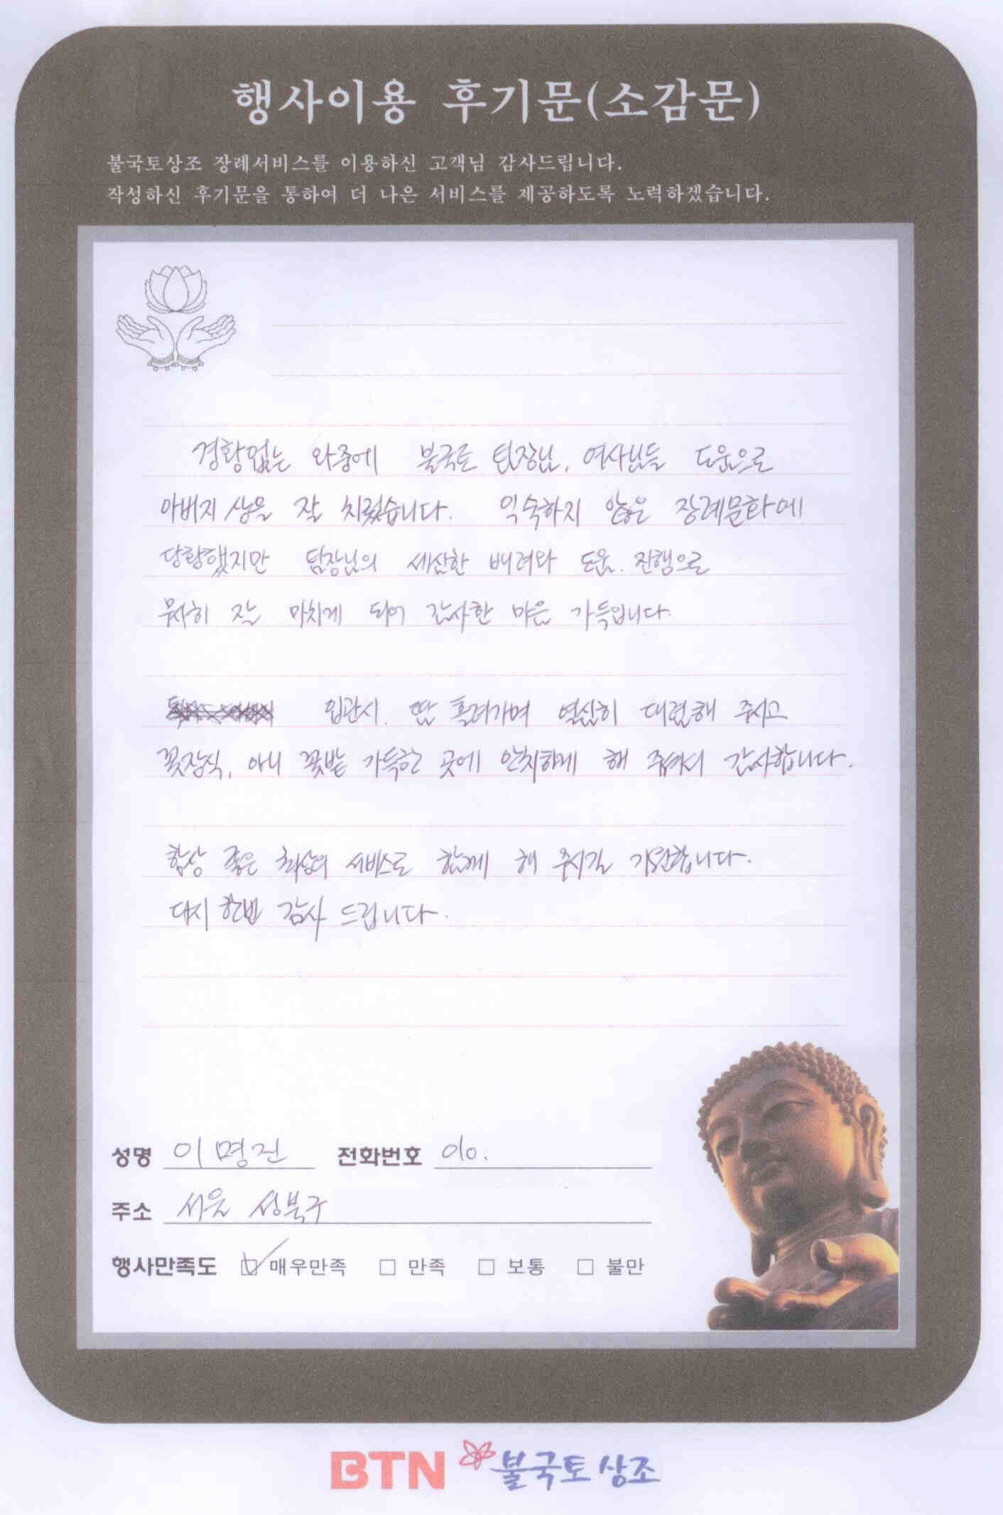 행사이용 후기문(소감문)
불국토상조 장례서비스를 이용하신 고객님 감사드립니다.
작성하신 후기문을 통하여 더 나은 서비스를 제공하도록 노력하겠습니다.
경황없는 와중에 불국토 팀장님, 여사님들 도움으로
아버지 상을 잘 치렀습니다. 익숙하지 않은 장례문화에
당황했지만 팀장님의 세심한 배려와 도움. 진행으로
무사히 잘 마치게 되어 감사한 마음 가득입니다.
입관시. 땀 흘려가며 열심히 대렴해 주시고
꽃장식, 아니 꽃밭 가득한 곳에 안치하게 해 주셔서 감사합니다.
항상 좋은 최상의 서비스로 함께 해 주시길 기원합니다.
다시 한번 감사 드립니다.
성명 이명진 전화번호 010.
주소 서울 성북구
행사만족도 매우만족 만족 보통 불만
BTN 불국토상조